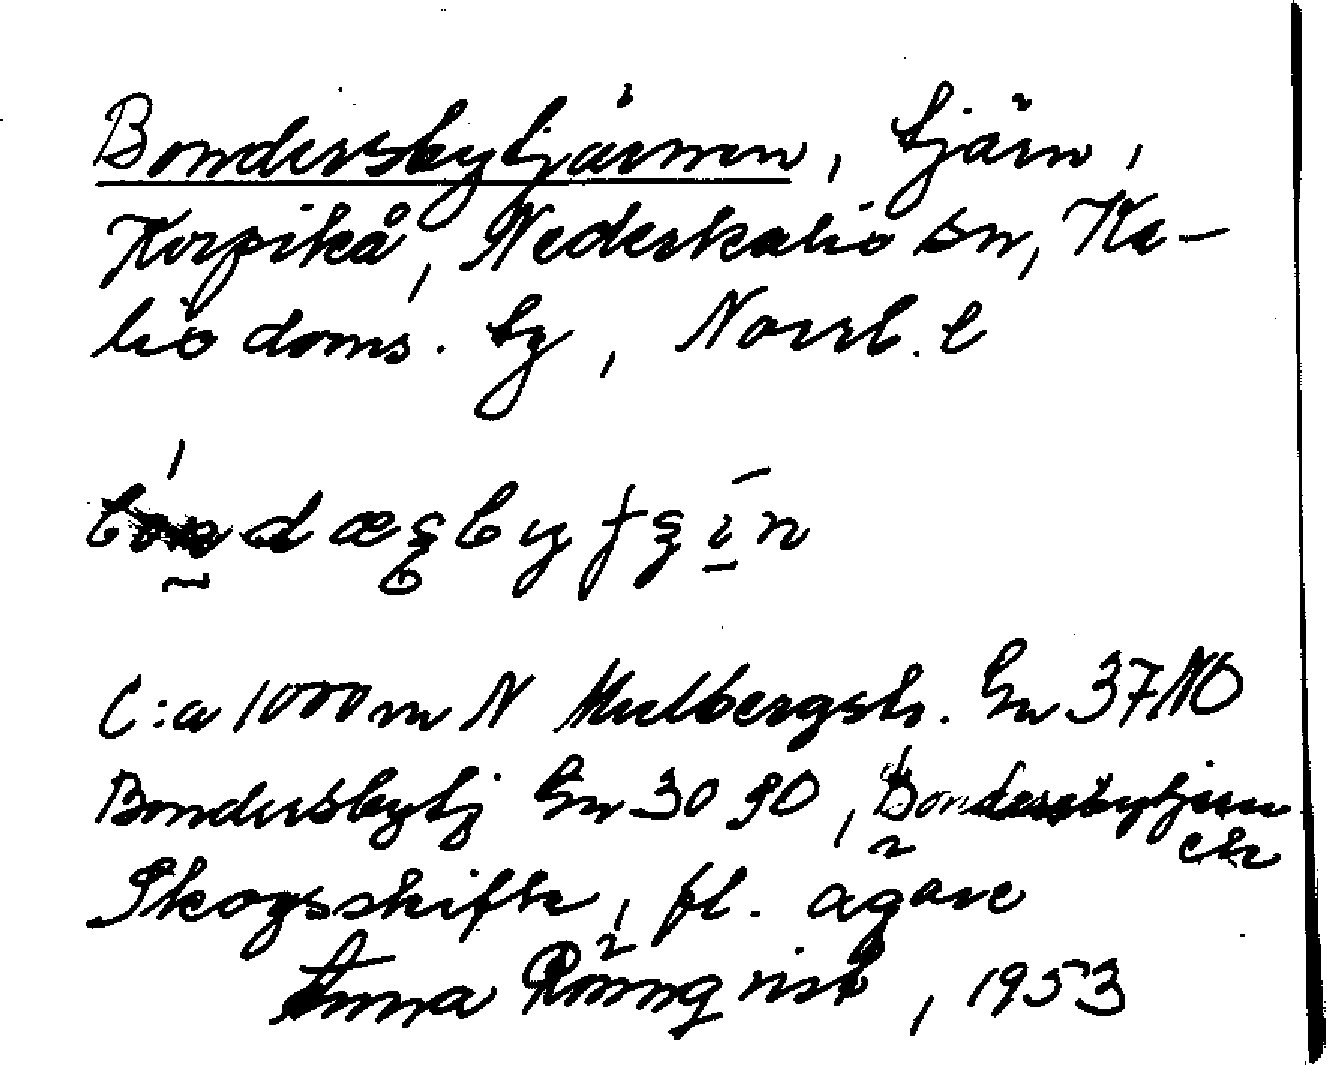 Bondersbytjärnen, tjärn,
Korpikå, Nederkalix sn, Ka-
lix doms. tg, Norrb. l
C:a 1000 m N Mulbergsh. Gn 37 NO
Bondersbytj Gn 30 SO, Bondersbytjärn
ek
Skogsskifte, fl. ägare
Anna Rönnqvist, 1953